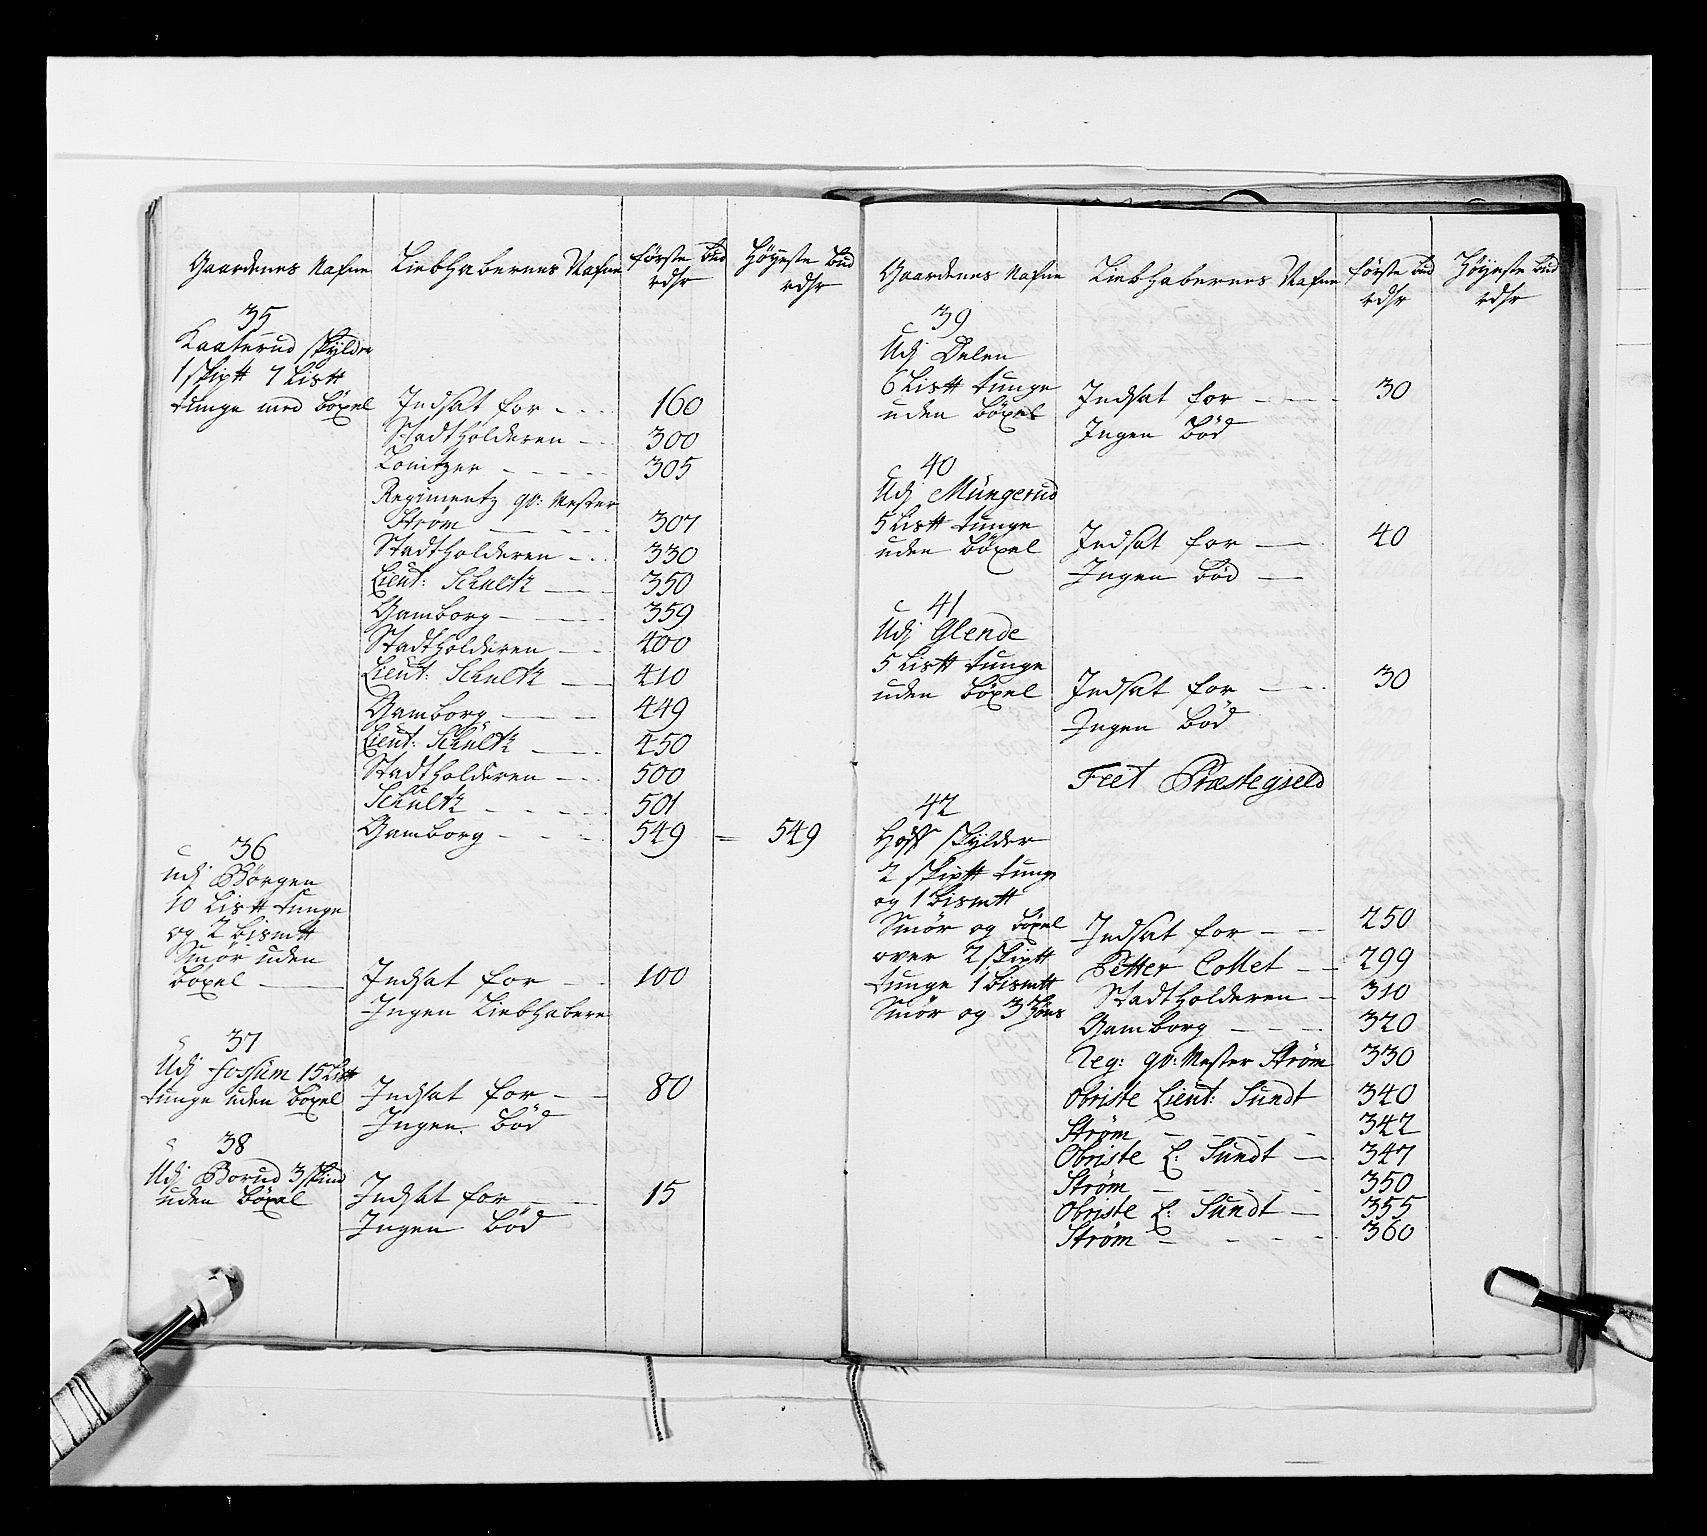 Gaardenes Nafne Liebhabernes Nafne første bud Høyeste bud
rdlr rdlr
35
Kaaterud skylder
1 skip℔ 7 Lis℔
tunge med böxel Indsat for - - - 160
Stadtholderen - - 300
Lonitzer - - - - 305
Regimentz qv: Mester
Strøm - - - - 307
Stadtholderen - - 330
Lieut: Schultz - - 350
Gamborg - - - 359
Stadtholderen - - 400
Lieut: Schultz - - 410
Gamborg - - - 449
Lieut: Schultz - - 450
Stadtholderen - - 500
Schultz - - - - 501
Gamborg - - - 549 = 549
36
Udj Börgen
10 Lis℔ tunge
og 2 bism℔
Smör uden
böxel - Indsat for - - 100
Ingen Liebhabere
37
Udj fossum 15 Lis℔
tunge uden böxel Indsat for - - 80
Ingen Böd
38
Udj Borud 3 skind
uden böxel Indsat for - - 15
Ingen böd
Gaardenes Nafne Liebhabernes Nafne første bud Høyeste bud
rdlr rdlr
39
Udj Delen
6 Lis℔ tunge Indsat for - - - 30
uden böxel
Ingen Böd
40
Udj Müngerud
5 Lis℔ tunge
uden böxel Indsat for - - 40
Ingen böd -
41
Udj Glende
5 Lis℔ tunge
uden böxel Indsat for - - 30
Ingen böd
Feet Præstegield
42
Hoff skylder
2 skip℔ tunge
og 1 bism℔
Smör og böxel Indsat for - - 250
over 2 skip℔ Petter Collet - - 299
tunge 1 bism℔ Stadtholderen - 310
Smör og 3 Gamborg - - - 320
Reg: qv: Mester Strøm 330
Obriste Lieut: Sundt 340
Strøm - - - - 342
Obriste L: Sundt - 347
Strøm - - - - 350
Obriste L: Sundt - 355
Strøm - - - - 360